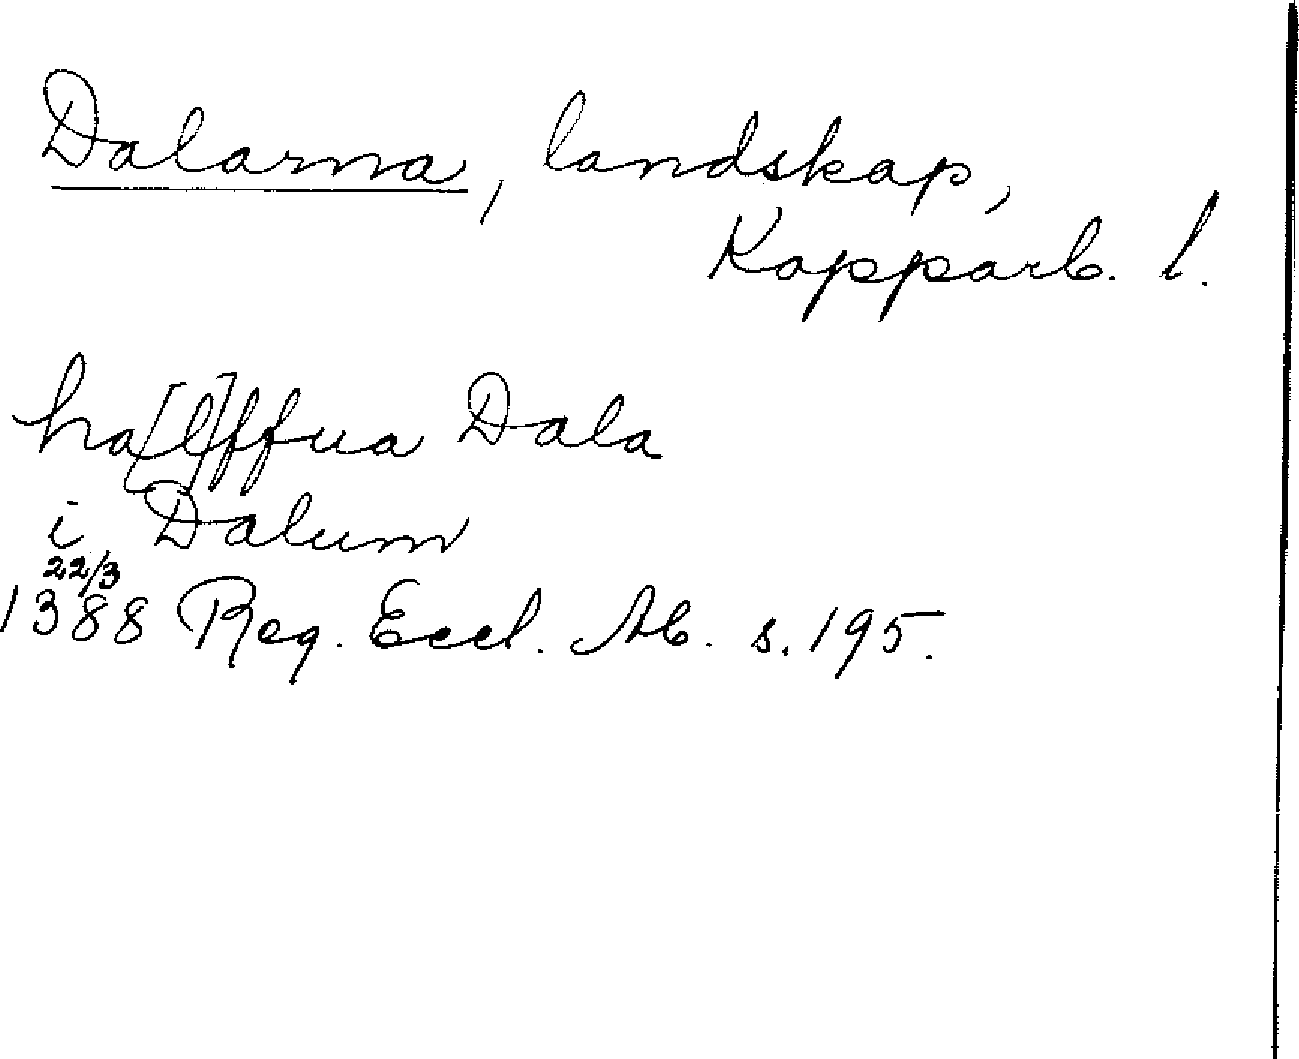 Dalarna, landskap,
Kopparb. l.
ha[l]ffua Dala
i Dalum
22/3
1388 Reg. Eccl. Ab. s. 195.